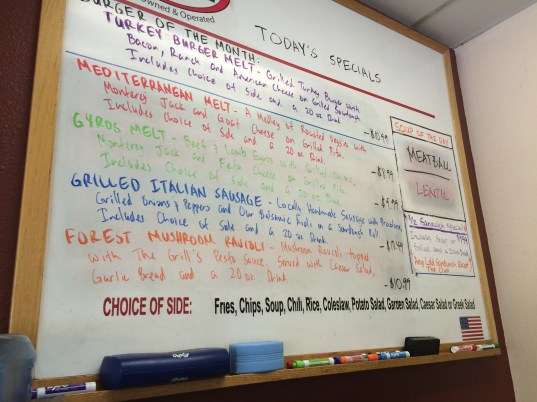 Owned & Operated
TODAY'S SPECIALS
BURGER OF THE MONTH:
TURKEY BURGER MELT - Grilled Turkey Burger with
Bacon, Ranch and American Cheese on Grilled Sourdough
Includes Choice of Side and a 20 oz Drink
- $10.99
MEDITERRANEAN MELT - A Medley of Roasted Veggies with
Monterey Jack and Goat Cheese on Grilled Pita.
Includes Choice of Side and a 20 oz Drink
- $9.99
GYROS MELT - Beef & Lamb Gyros with Grilled
Monterey Jack and Feta Cheese on Grilled Pita.
Includes Choice of Side and a 20 oz Drink
- $9.99
GRILLED ITALIAN SAUSAGE - Locally Handmade Sausage with Provolone,
Grilled Onions & Peppers and Our Balsamic Aioli on a Sourdough Roll
Includes Choice of Side and a 20 oz Drink
FOREST MUSHROOM RAVIOLI - Mushroom Ravioli topped
with The Grill's Pesto Sauce. Served with Caesar Salad,
Garlic Bread and a 20 oz Drink
- $10.99
SOUP OF THE DAY
MEATBALL
LENTIL
1/2 Sandwich Special
Includes Soup or
Salad and a 20oz Drink
Any Cold Sandwich Except
The Club
CHOICE OF SIDE: Fries, Chips, Soup, Chili, Rice, Coleslaw, Potato Salad, Garden Salad, Caesar Salad or Greek Salad